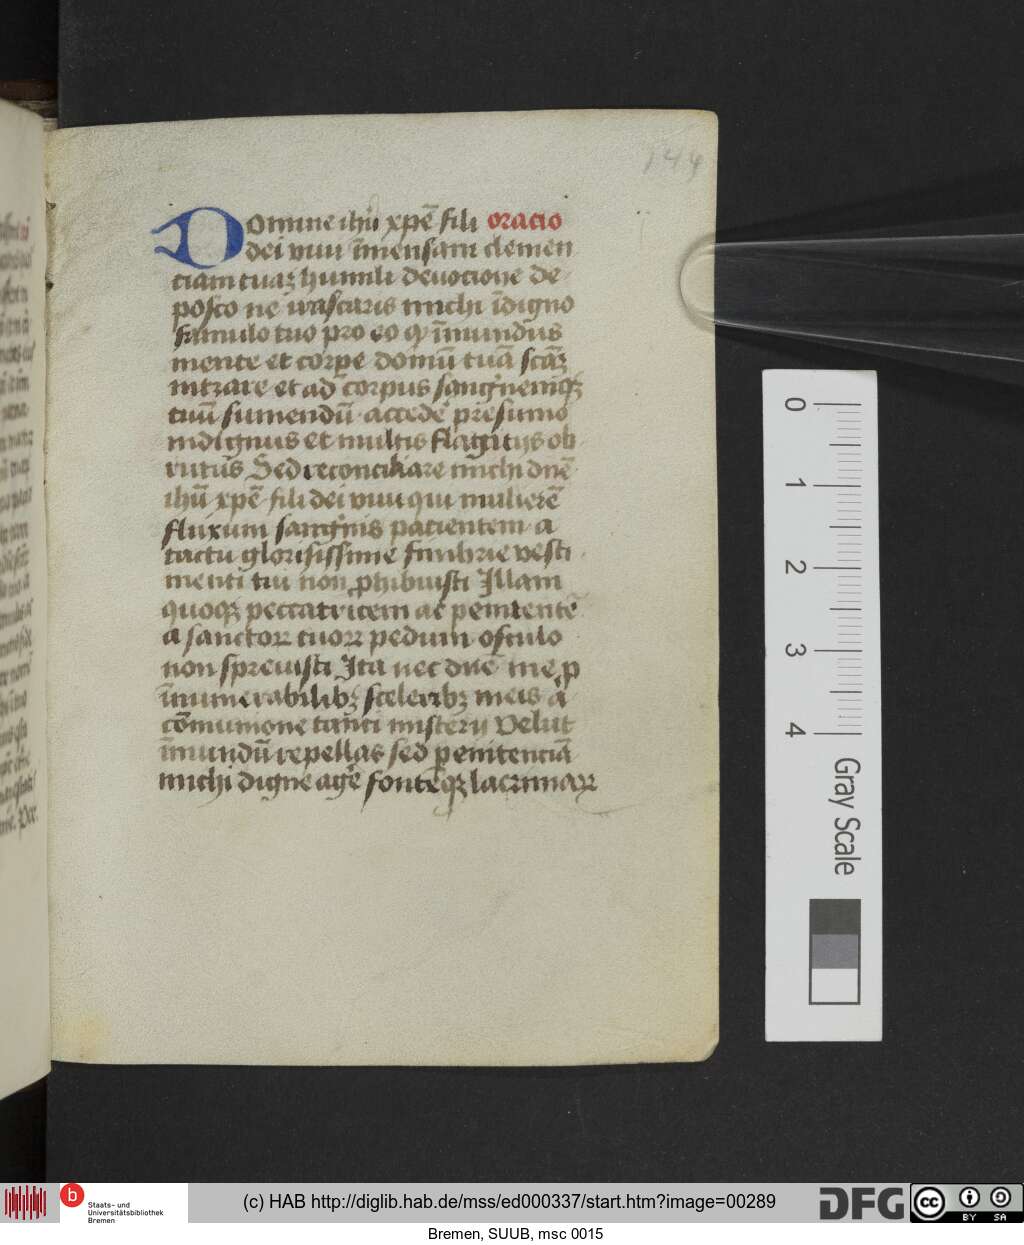 144
Domine ihū xpē fili oracio
dei viui īmensam clemen
ciam tuaȝ humili deuocione de
posco ne irascaris michi īdigno
famulo tuo pro eo qͥ īmundus
mente et corpe domū tuā scāȝ
intrare et ad corpus sangͥnemqȝ
tuū sumendū accede presumo
indignus et multis flagitijs ob
rutus Sed reconciliare michi dnē
ihū xpē fili dei viui qui mulierē
fluxum sangͥnis pacientem a
tactu glorisissime fimbrie vesti
menti tui non phibuisti Illam
quoqȝ peccatricem ac penitentē
a sanctoꝝ tuoꝝ pedum osculo
non spreuisti Ita nec dnē me p
īnumerabilibȝ sceleribȝ meis a
cōmunione tanti misterij Velut
īmundū repellas sed penitenciā
michi digne agē fontēqȝ lacrimaꝝ
0
1
2
3
4
Gray Scale
b Staats- und
Universitätsbibliothek
Bremen
(c) HAB http://diglib.hab.de/mss/ed000337/start.htm?image=00289
DFG
cc BY SA
Bremen, SUUB, msc 0015